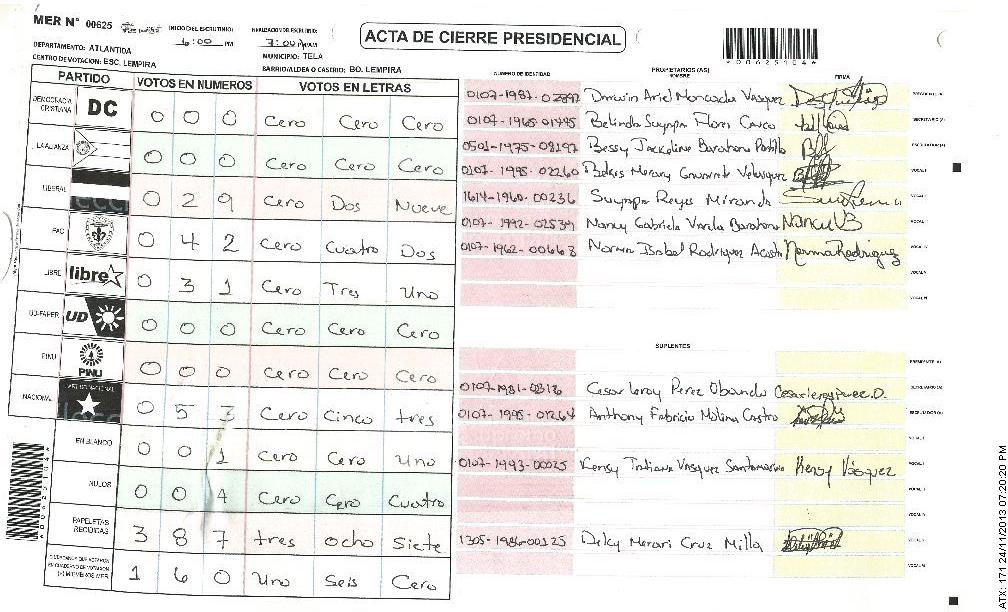 MER N° 00625
INICIO DEL ESCRUTINIO:
6:00 PM
FINALIZACION DE ESCRUTINIO:
7:00 PM
ACTA DE CIERRE PRESIDENCIAL
*00625104*
DEPARTAMENTO: ATLANTIDA
MUNICIPIO: TELA
CENTRO DE VOTACION: ESC. LEMPIRA
BARRIO/ALDEA O CASERIO: BO. LEMPIRA
PARTIDO VOTOS EN NUMEROS VOTOS EN LETRAS
DEMOCRACIA CRISTIANA DC 0 0 0 Cero Cero Cero
LA ALIANZA 0 0 0 Cero Cero Cero
LIBERAL 0 2 9 Cero Dos Nueve
PAC 0 4 2 Cero Cuatro Dos
LIBRE libre 0 3 1 Cero Tres Uno
UD-FAPER UD 0 0 0 Cero Cero Cero
PINU PINU 0 0 0 Cero Cero Cero
NACIONAL 0 5 3 Cero Cinco tres
EN BLANCO 0 0 1 Cero Cero Uno
NULOS 0 0 4 Cero Cero Cuatro
PAPELETAS RECIBIDAS 3 8 7 tres Ocho Siete
CIUDADANOS QUE VOTARON EN CUADERNO DE VOTACION (+) MIEMBROS MER 1 6 0 Uno Seis Cero
NUMERO DE IDENTIDAD PROPIETARIOS (AS) NOMBRE FIRMA
0107-1987-02892 Darwin Ariel Moncada Vasquez PRESIDENTE (A)
0107-1965-01495 Belinda Suyapa Flores SECRETARIO (A)
0501-1975-08197 Bessy Jackeline Barahona Portillo ESCRUTADOR (A)
0107-1995-02260 Belkis Merary Velasquez VOCAL I
1614-1960-00236 Suyapa Reyes Miranda
0107-1992-02539 Nancy Gabriela Varela Barahona Nancy VB
0107-1962-00663 Norma Isabel Rodriguez Acosta Norma Rodriguez
SUPLENTES
PRESIDENTE (A)
0107-1981-0313 Cesar leroy Perez Obando Cesar leroy Perez O. SECRETARIO (A)
0107-1995-01264 Anthony Fabricio Molina Castro ESCRUTADOR (A)
0107-1993-00025 Kensy Tatiana Vasquez Santamaria Kensy Vásquez
1305-1986-00125 Delcy Merari Cruz Milla
ATX: 171 24/11/2013 07:20:20 PM